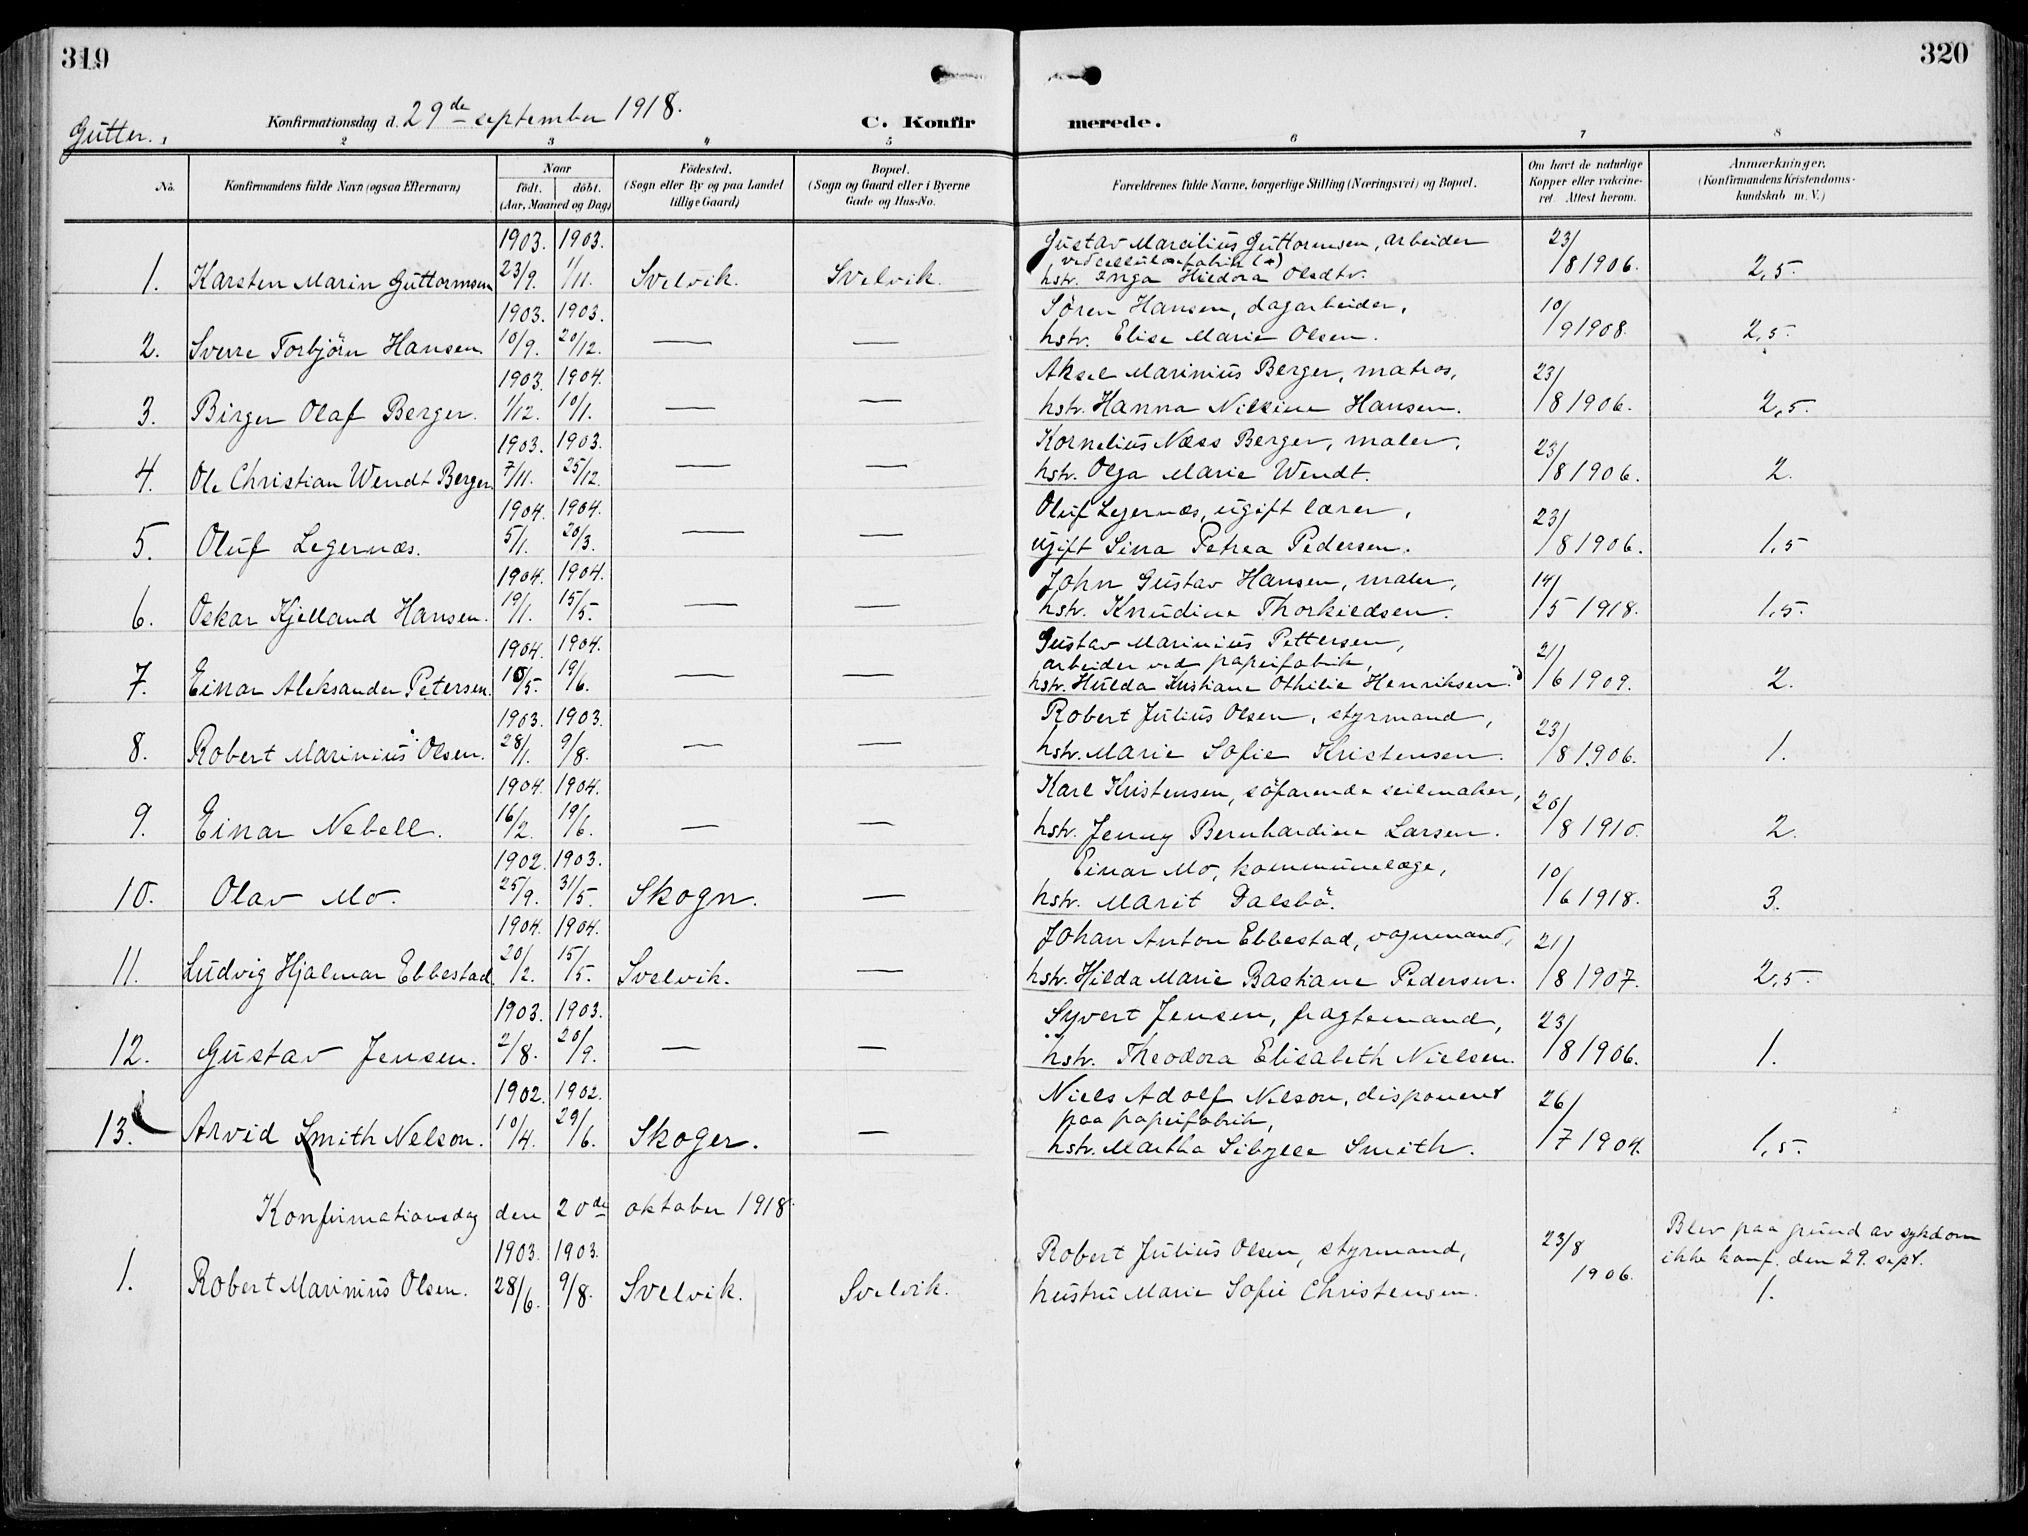 319
320
Gutter.
Konfirmationsdag d. 29de september 1918.
C. Konfirmerede.
1 2 3 4 5 6 7 8
No.
Konfirmandens fulde Navn (ogsaa Efternavn)
Naar
födt. döbt.
(Aar, Maaned og Dag)
Födested.
(Sogn eller By og paa Landet
tillige Gaard)
Bopæl.
(Sogn og Gaard eller i Byerne
Gade og Hus-No.
Forældrenes fulde Navne, borgerlige Stilling (Næringsvei) og Bopæl.
Om havt de naturlige
Kopper eller vakcine-
ret. Attest herom.
Anmærkninger.
(Konfirmandens Kristendoms-
kundskab m. V.)
1903. 1903. Gustav Marcilius Guttormsen, arbeider 23/
ved cellulosefabrik (*)
1. Karsten Marin Guttormsen 23/9. 1/11. Svelvik. Svelvik. hstr. Inga Hildora Olsdtr. /8 1906. 2,5.
1903. 1903. Søren Hansen, dagarbeider, 10/
2. Sverre Torbjörn Hansen. 10/9. 20/12. — — hstr. Elise Marie Olsen. /9 1908. 2,5.
1903. 1904. Aksel Marinius Berger, matros, 23/
3. Birger Olaf Berger. 1/12. 10/1. — — hstr. Hanna Nilsine Hansen. /8 1906. 2,5.
1903. 1903. Kornelius Næss Berger, maler, 23/
4. Ole Christian Wendt Berger. 7/11. 25/12. — — hstr. Olga Marie Wendt. /8 1906. 2.
1904. 1904. Oluf Legernæs, ugift lærer, 23/
5. Oluf Legernæs. 5/1. 20/3. — — ugift Sina Petrea Pedersen. /8 1906. 1,5
1904. 1904. John Gustav Hansen, maler, 14/
6. Oskar Kjelland Hansen. 19/1. 15/5. — — hstr. Knudine Thorkildsen. /5 1918. 1,5.
1904. 1904. Gustav Marinius Pettersen, 21/
arbeider ved papirfabrik,
7. Einar Aleksander Petersen. /5. 19/6. — — hstr. Hulda Kristiane Othilie Henriksen. /6 1909. 2.
1903. 1903. Robert Julius Olsen, styrmand, 23/
8. Robert Marinius Olsen. 28/1. 9/8. — — hstr. Marie Sofie Kristensen. /8 1906. 1.
1904. 1904. Karl Kristensen, söfarende seilmaker, 20/
9. Einar Nebell. 16/2. 19/6. — — hstr. Jenny Bernhardine Larsen. /8 1910. 2.
1902. 1903. Einar Mo, kommunelæge, 10/
10. Olav Mo. 25/9. 31/5. Skogn. — hstr. Marit Dalsbö. /6 1918. 3.
1904. 1904. Johan Anton Ebbestad, vognmand, 21/
11. Ludvig Hjalmar Ebbestad. 20/2. 15/5. Svelvik. — hstr. Hilda Marie Bastiane Pedersen. /8 1907. 2,5.
1903. 1903. Syvert Jensen, fragtemand, 23/
12. Gustav Jensen. 2/8. 20/9. — — hstr. Theodora Elisabeth Nielsen. /8 1906. 1.
1902. 1902. Niels Adolf Nelson, disponent 26/
paa papirfabrik,
13. Arvid Smith Nelson. 10/4. 29/6. Skoger. — hstr. Martha Sibylle Smith. /7 1904. 1,5.
Konfirmationsdag den 20de oktober 1918.
Blev paa grund av sykdom
1903. 1903. Robert Julius Olsen, styrmand, 23/8 ikke konf. den 29. sept.
1. Robert Marinius Olsen. 28/6. 9/8. Svelvik. Svelvik. hustru Marie Sofie Christensen. 1906. 1.